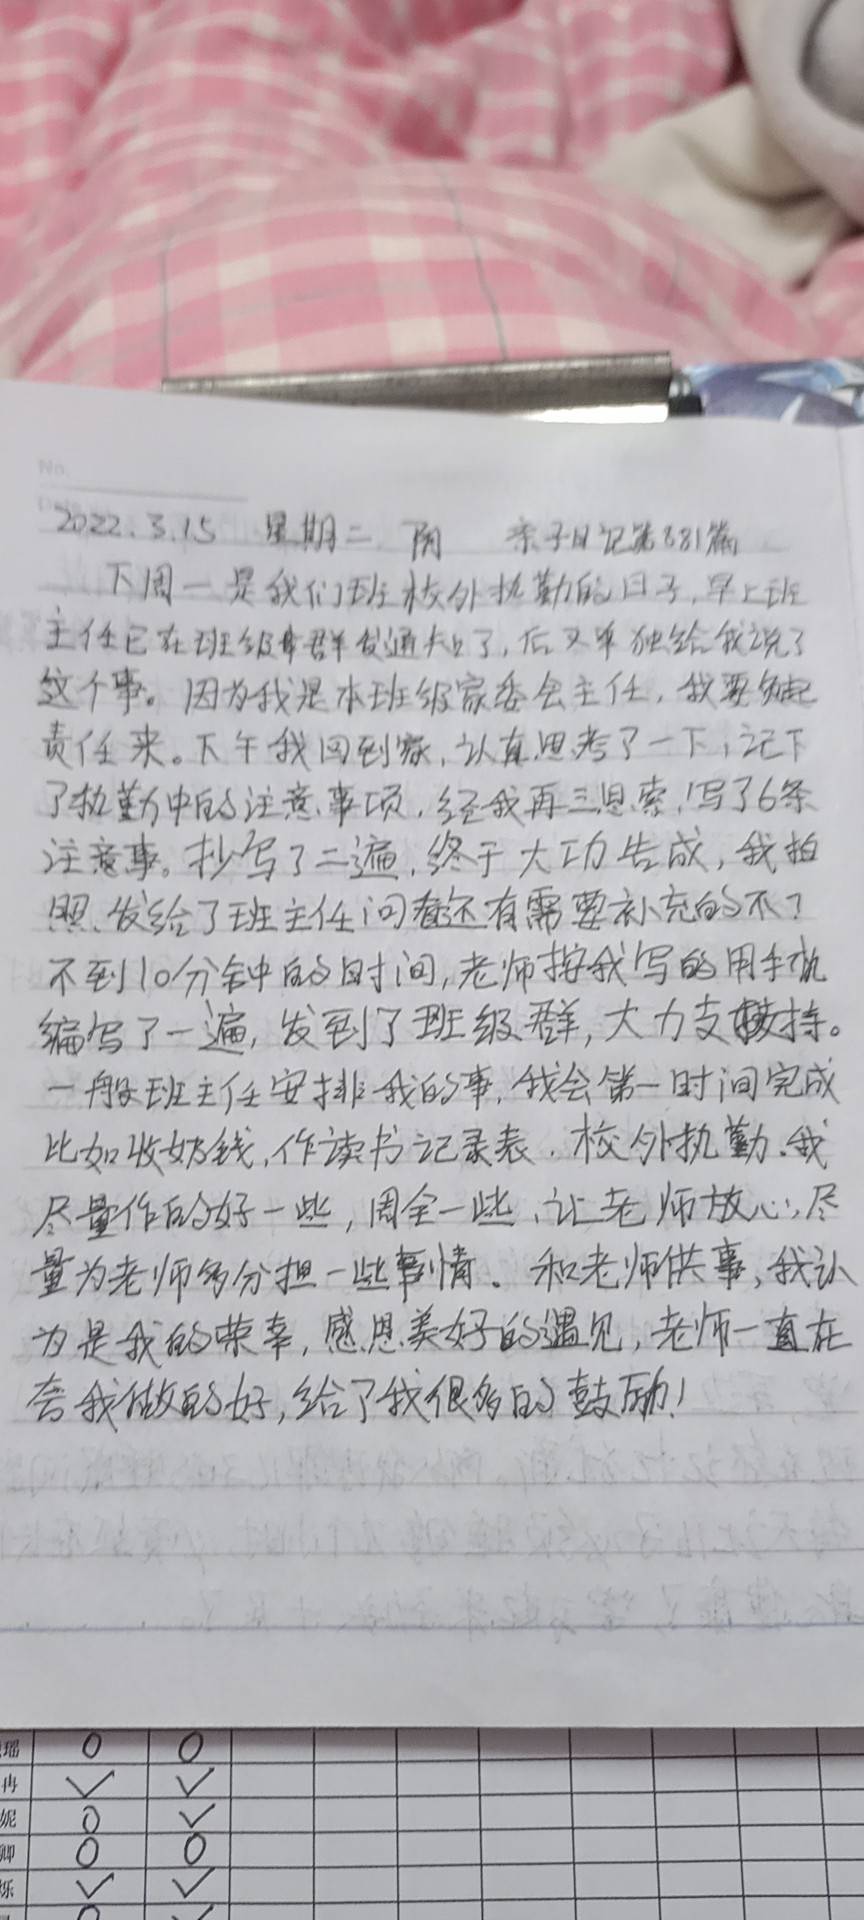 No.
2022.3.15 星期二 阴 亲子日记第881篇
下周一是我们班校外执勤的日子,早上班
主任已在班级群发通知了,后又单独给我说了
这个事。因为我是本班级家委会主任,我要负起
责任来。下午我回到家,认真思考了一下,记下
了执勤中的注意事项,经我再三思索,写了6条
注意事。抄写了二遍,终于大功告成,我拍
照发给了班主任问看还有需要补充的不?
不到10分钟的时间,老师按我写的用手机
编写了一遍,发到了班级群,大力支持。
一般班主任安排我的事,我会第一时间完成
比如收奶钱,作读书记录表,校外执勤.我
尽量作的好一些,周全一些,让老师放心,尽
量为老师多分担一些事情。和老师供事,我认
为是我的荣幸,感恩美好的遇见,老师一直在
夸我做的好,给了我很多的鼓励!
瑶 O O
冉 ✓ ✓
妮 O ✓
卿 O O
烁 ✓ ✓